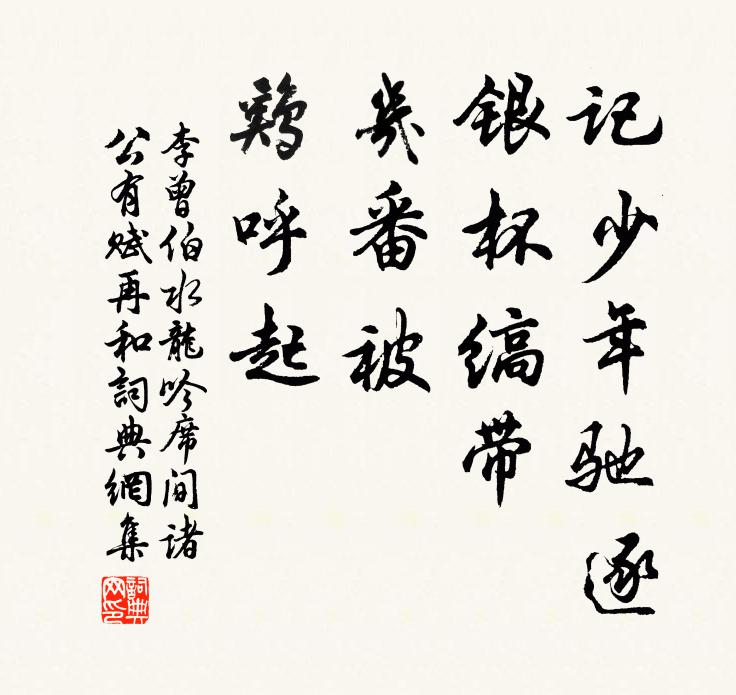 记少年驰逐
银杯缟带
幾番被
鷄呼起
李曾伯水龍吟席间诸
公有赋再和詞典網集
詞典网印